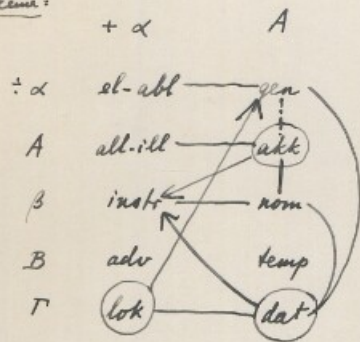 + α A
÷ α el-abl gen
A all-ill akk
β instr nom
B adv temp
Γ lok dat